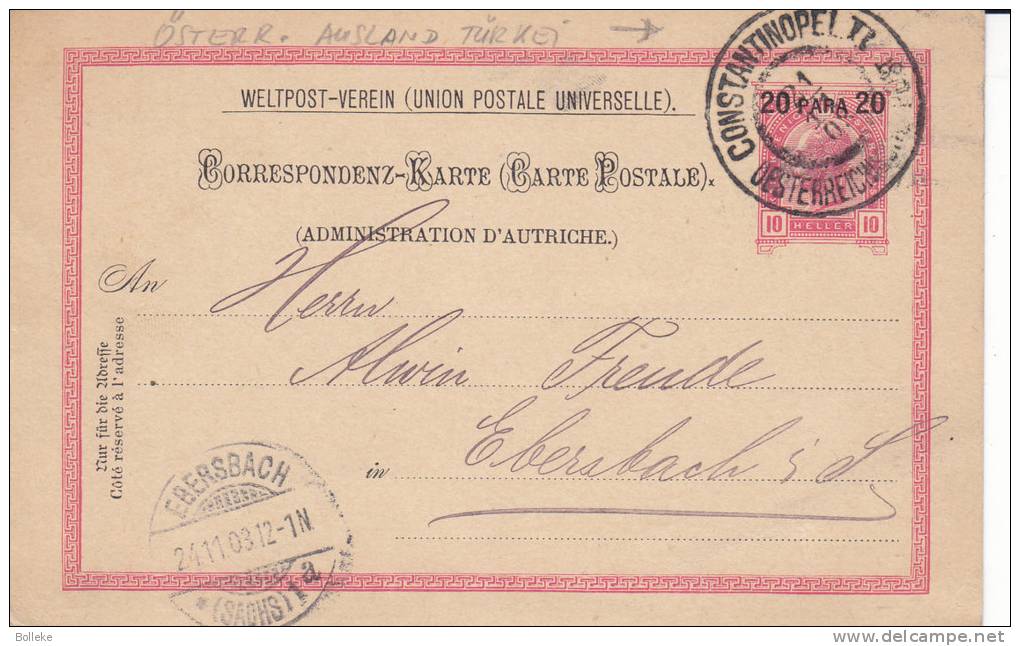 ÖSTERR. AUSLAND TÜRKEI
WELTPOST-VEREIN (UNION POSTALE UNIVERSELLE).
CORRESPONDENZ-KARTE (CARTE POSTALE).
(ADMINISTRATION D'AUTRICHE.)
CONSTANTINOPEL II
OESTERREICH
20 PARA 20
10 HELLER 10
An Herrn
Alwin Freude
in Ebersbach i/S
Nur für die Adresse
Côté réservé à l'adresse
EBERSBACH
24.11.03.12-1N
* (SACHS) 1a
Bolleke
delcampe.net